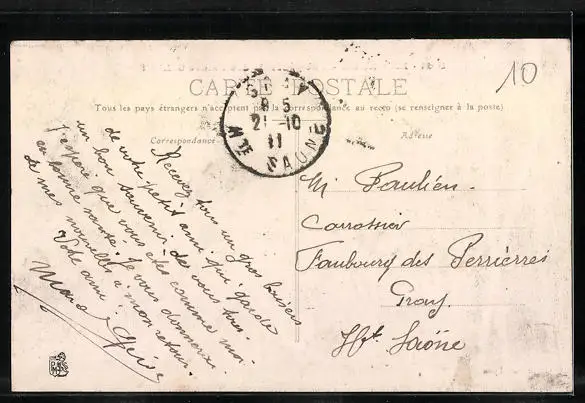 10
CARTE POSTALE
Tous les pays étrangers n'acceptent pas la correspondance au recto (se renseigner à la poste)
Correspondance
Adresse
8 5
21-10
11
Hte SAONE
Recevez tous un gros baisers
de votre petit ami qui garde
un bon souvenir de vous tous.
J'espère que vous êtes comme moi
en bonne santé. Je vous donnerai
de mes nouvelles à mon retour.
Votre ami
M Paulien
Carrossier
Faubourg des Perrières
Gray
Hte Saône